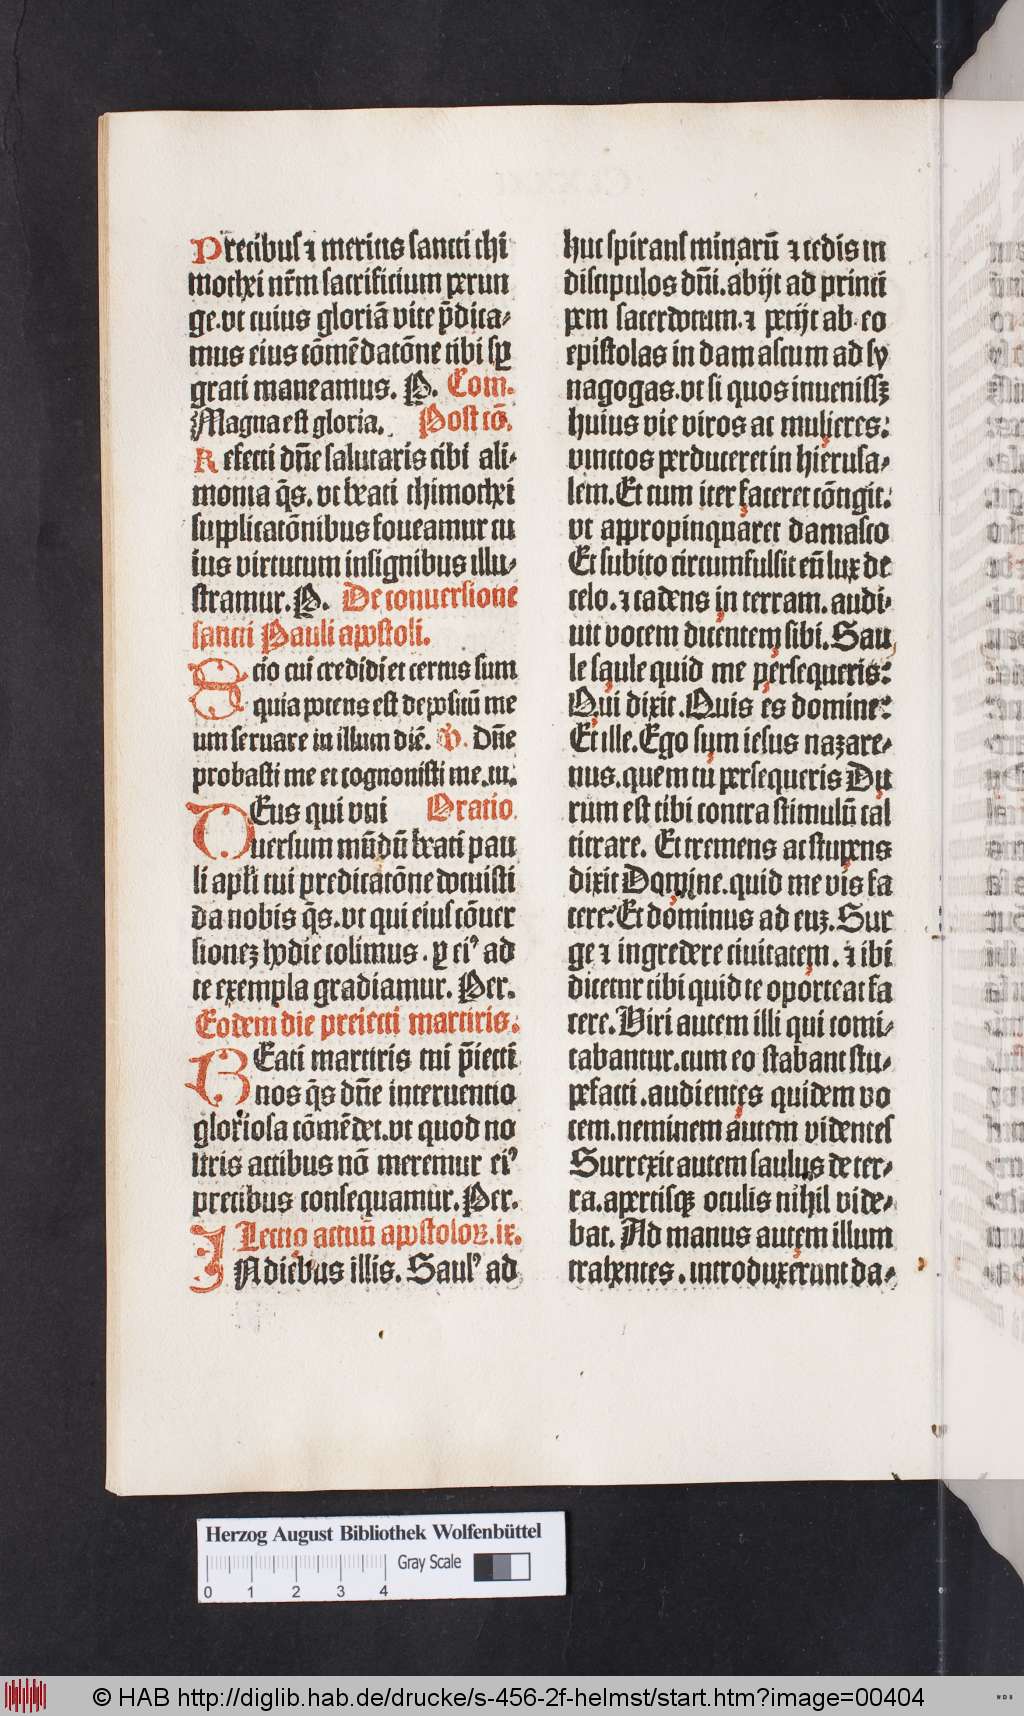 Precibus ⁊ meritis sancti thi
mothei nr̄m sacrificium perun
ge.vt cuius gloriā vite p̄dica⸗
mus eius cōmēdatōne tibi sy
grati maneamus. P. Com.
Magna est gloria. Post cō.
Refecti dn̄e salutaris cibi ali⸗
monia q̄s. vt beati thimothei
supplicatōnibus foueamur cu
ius virtutum insignibus illu⸗
stramur. P. De conuersione
sancti Pauli apostoli.
Scio cui credidi et certus sum
quia potens est depositū me
um seruare in illum diē. V̄. Dn̄e
probasti me et cognouisti me.tu.
DEus qui vni Oratio.
uersum mūdū beati pau
li apłi tui predicatōne docuisti
da nobis q̄s. vt qui eius cōuer
sionez hodie colimus. p eiꝰ ad
te exempla gradiamur. Per.
Eodem die preiecti martiris.
BEati martiris tui p̄iecti
nos q̄s dn̄e interuentio
gloriosa cōmēdet.vt quod no
stris actibus nō meremur eiꝰ
precibus consequamur. Per.
Lectio actuū apostoloꝝ.ix.
INdiebus illis. Saulꝰ ad
huc spirans minarū ⁊ cedis in
discipulos dn̄i.abijt ad princi
pem sacerdotum.⁊ petijt ab eo
epistolas in damascum ad sy
nagogas.vt si quos inuenissꝫ
huius vie viros ac mulieres:
vinctos perduceret in hierusa⸗
lem. Et cum iter faceret cōtigit.
vt appropinquaret damasco
Et subito circumfulsit eū lux de
celo.⁊ cadens in terram. audi⸗
uit vocem dicentem sibi. Sau
le saule quid me persequeris:
Qui dixit. Quis es domine:
Et ille. Ego sum iesus nazare⸗
nus.quem tu persequeris Du
rum est tibi contra stimulū cal
citrare. Et tremens ac stupens
dixit Domine.quid me vis fa
cere: Et dominus ad euꝫ. Sur
ge ⁊ ingredere ciuitatem.⁊ ibi
dicetur tibi quid te oporteat fa
cere. Viri autem illi qui comi⸗
tabantur.cum eo stabant stu⸗
pefacti.audientes quidem vo
cem.neminem autem videntes
Surrexit autem saulus de ter⸗
ra.apertisqꝫ oculis nihil vide⸗
bat. Ad manus autem illum
trahentes.introduxerunt da⸗
Herzog August Bibliothek Wolfenbüttel
Gray Scale
0 1 2 3 4
© HAB http://diglib.hab.de/drucke/s-456-2f-helmst/start.htm?image=00404